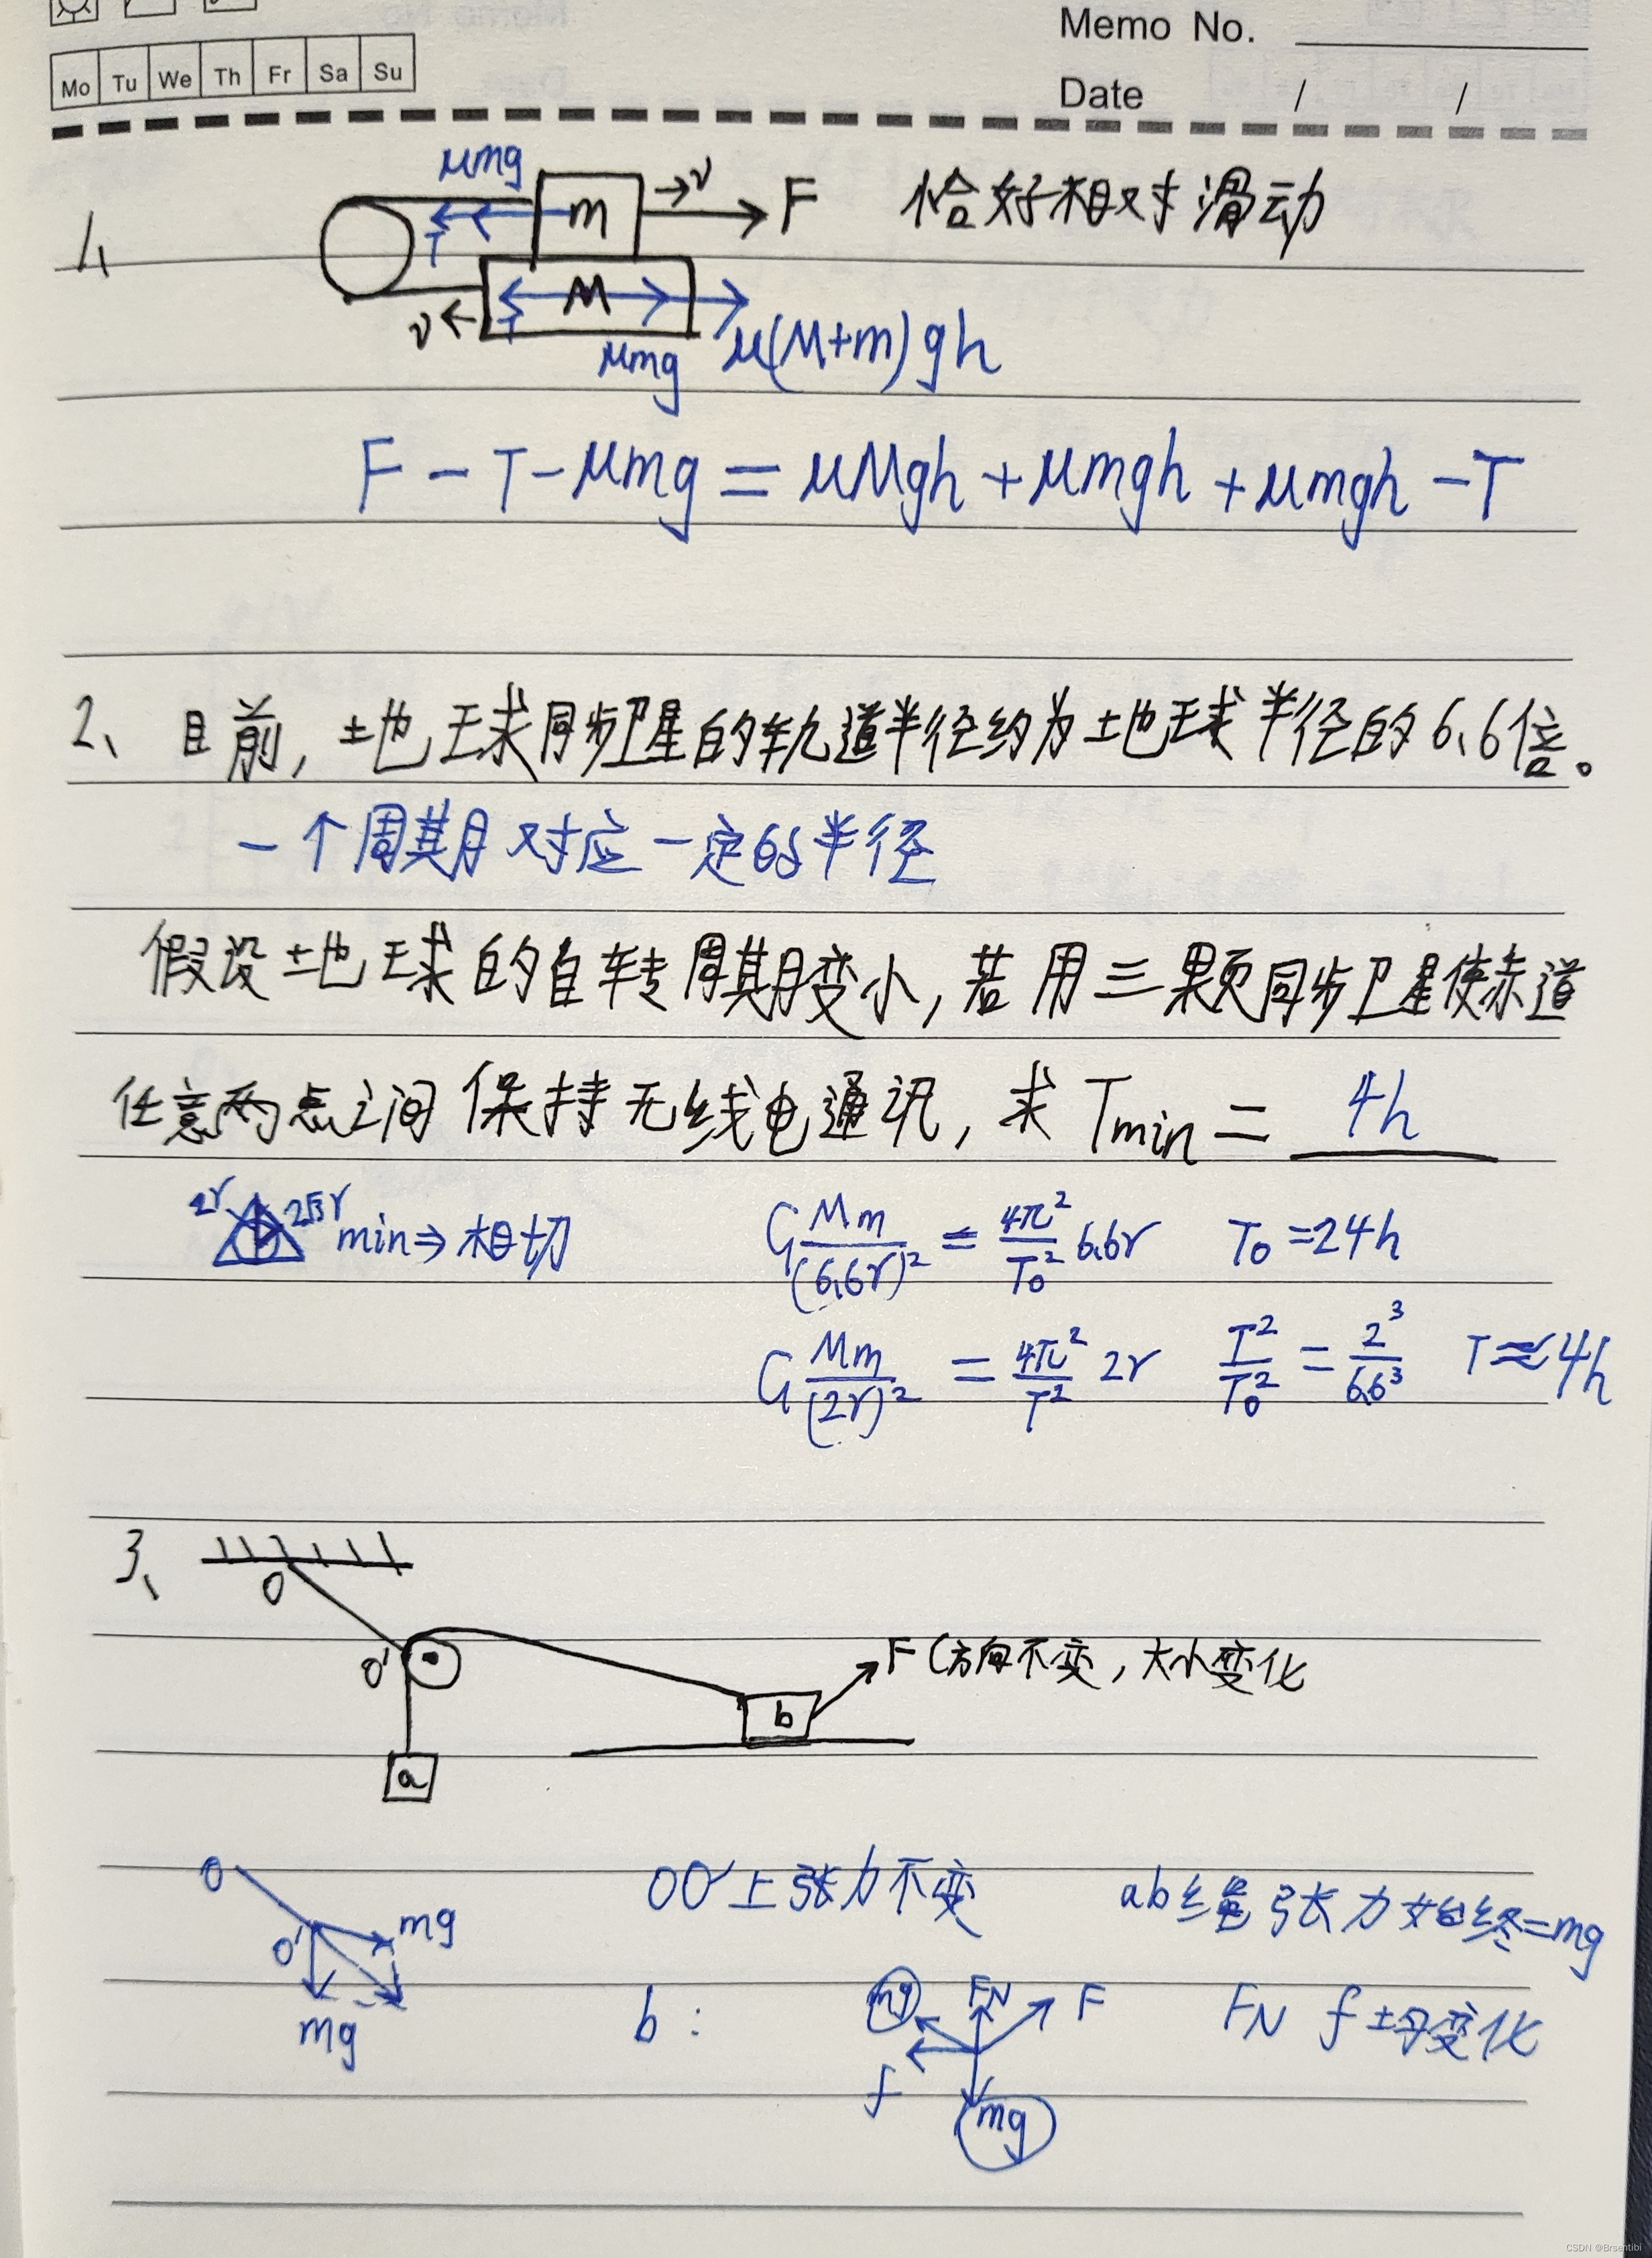 Memo No.
Mo Tu We Th Fr Sa Su
Date / /
1、
μmg
m
v
F
恰好相对滑动
T
M
v
T
μmg
μ(M+m)gh
F - T - μmg = μMgh + μmgh + μmgh - T
2、目前,地球同步卫星的轨道半径约为地球半径的6.6倍。
一个周期对应一定的半径
假设地球的自转周期变小,若用三颗同步卫星使赤道
任意两点之间保持无线电通讯,求 Tmin = 4h
2r 2√3r min⇒相切 G Mm/(6.6r)² = 4π²/T₀² 6.6r T₀=24h
G Mm/(2r)² = 4π²/T² 2r T²/T₀² = 2³/6.6³ T≈4h
3、
O
O'
F(方向不变,大小变化
b
a
O
OO'上张力不变 ab绳张力始终=mg
mg
O'
mg
b: mg FN F FN f 均变化
f
mg
CSDN @Brsentibi